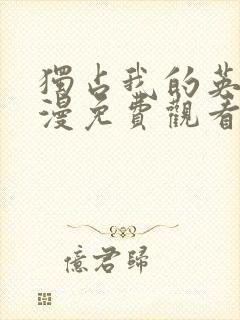 獨占我的英
漫免費觀看
億君歸